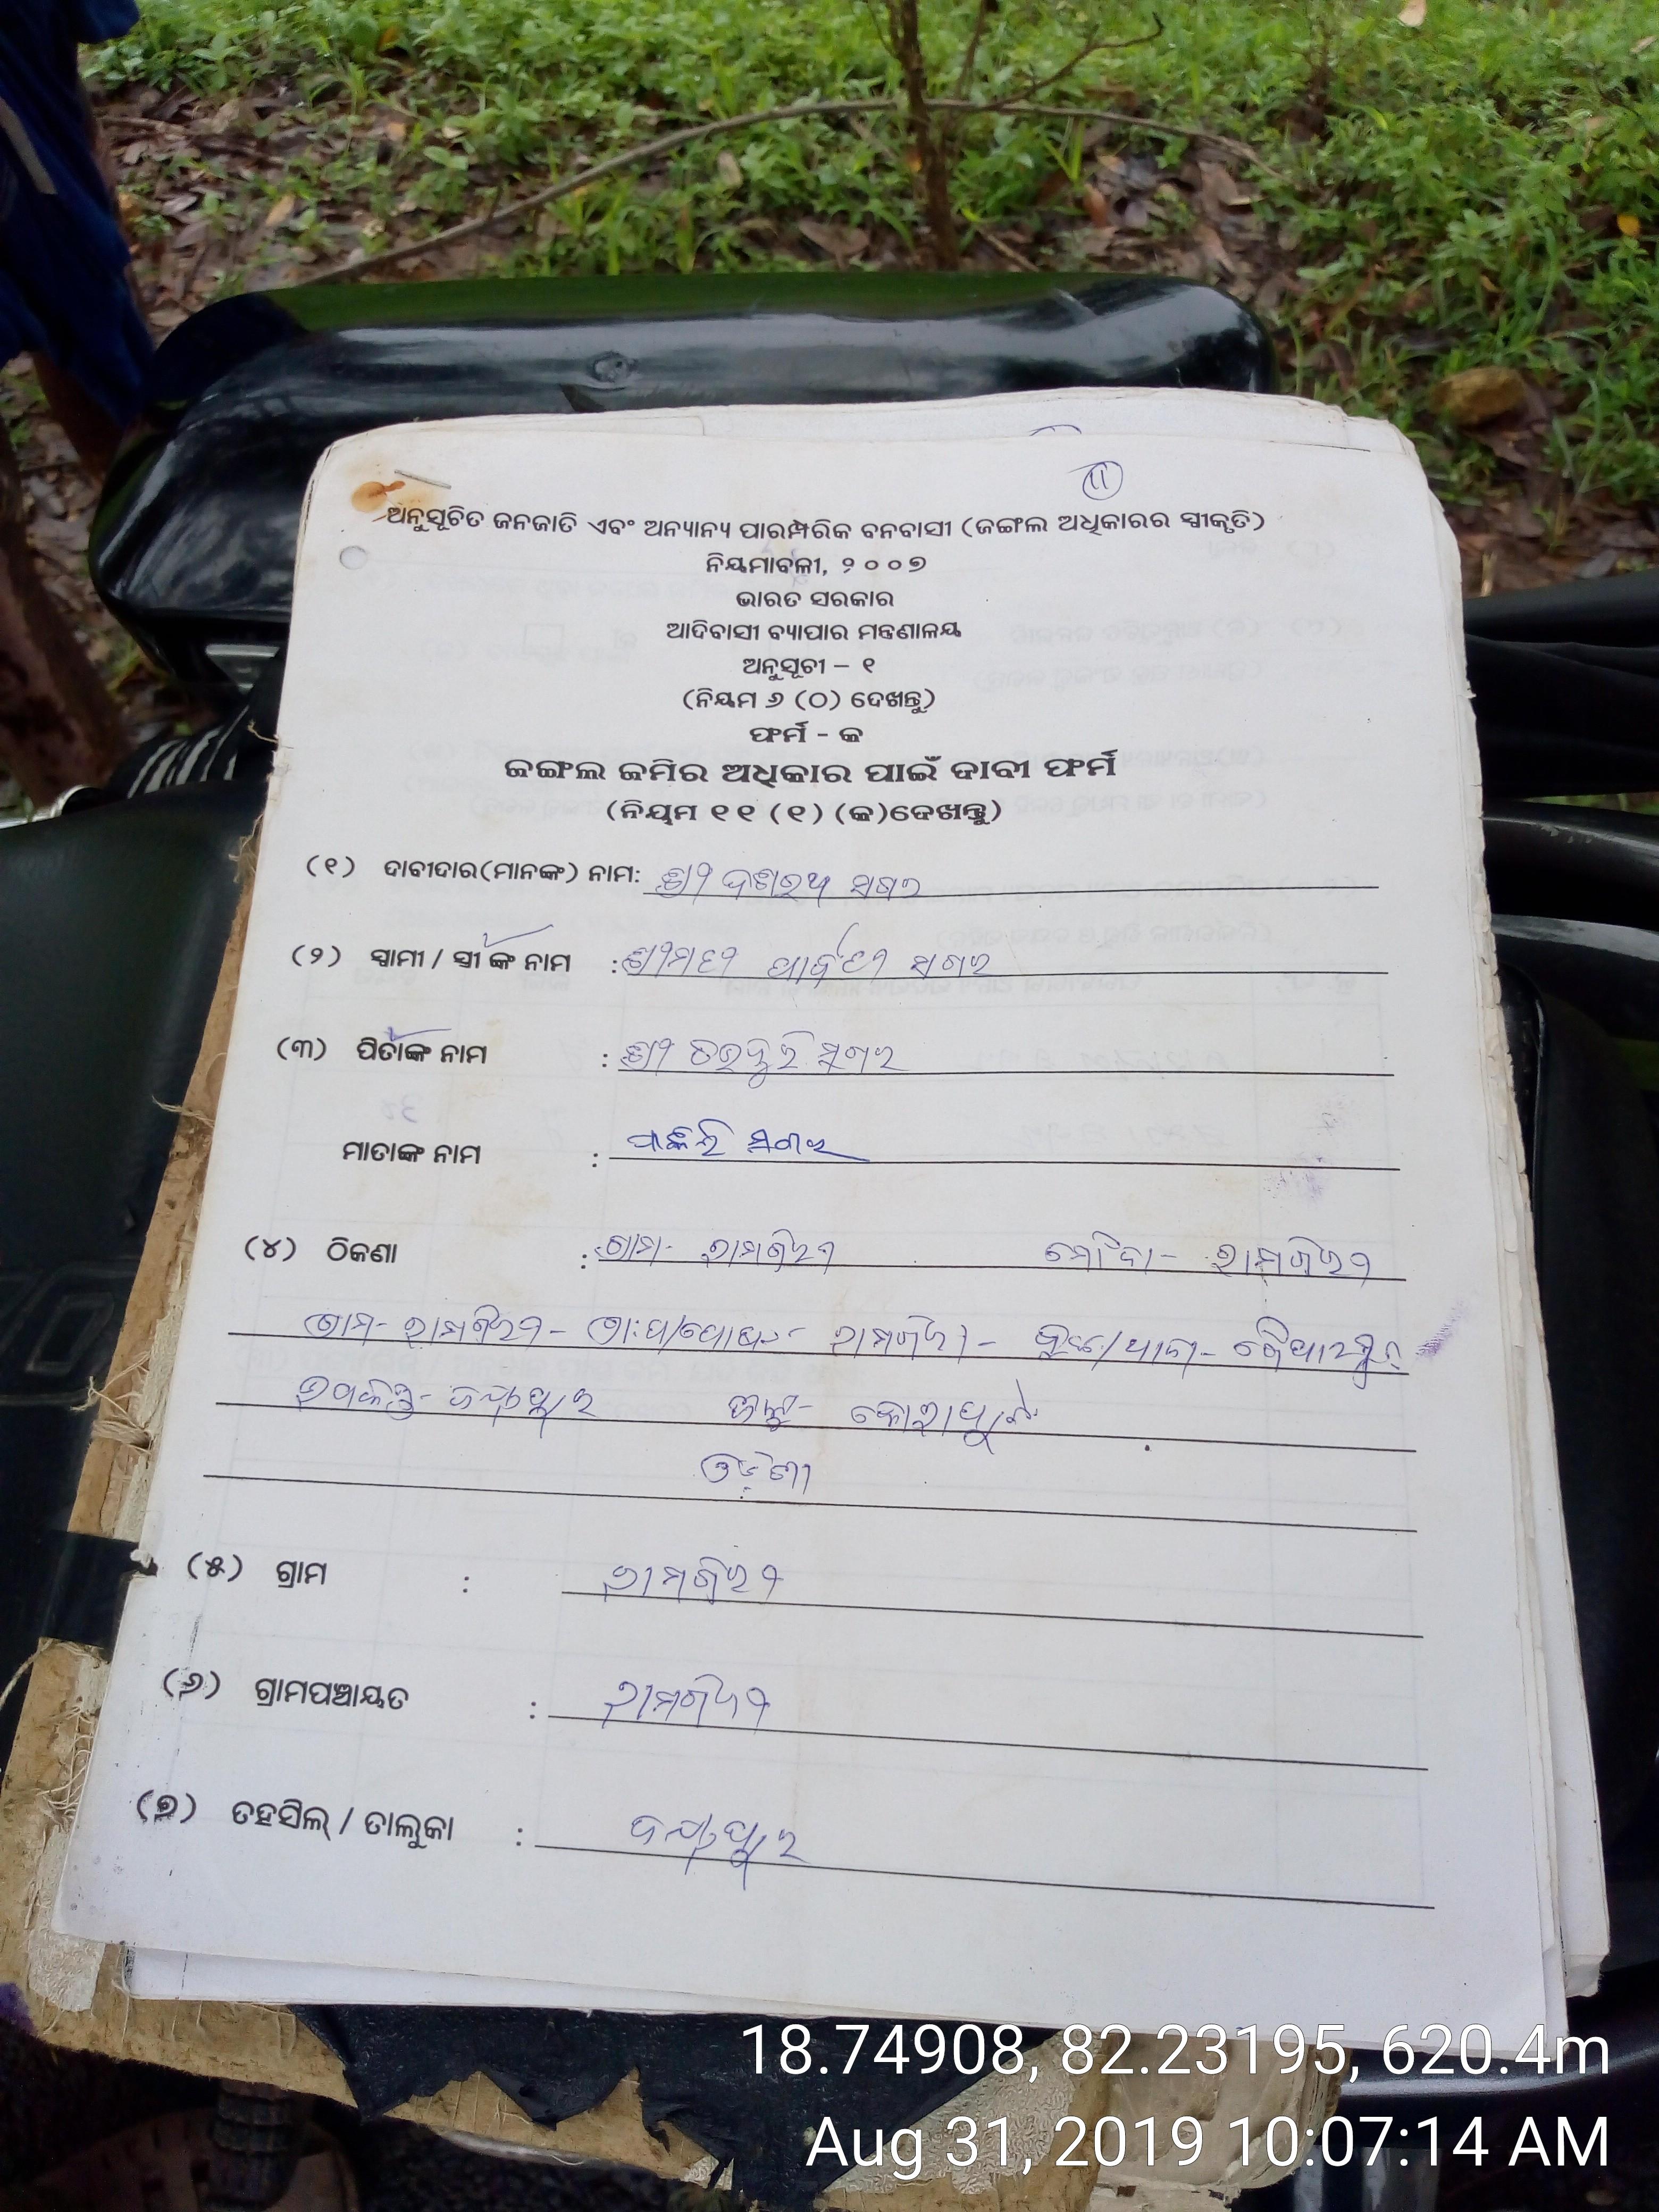 ୧୧
ଅନୁସୂଚିତ ଜନଜାତି ଏବଂ ଅନ୍ୟାନ୍ୟ ପାରମ୍ପରିକ ବନବାସୀ (ଜଙ୍ଗଲ ଅଧିକାରର ସ୍ୱୀକୃତି)
ନିୟମାବଳୀ, ୨୦୦୭
ଭାରତ ସରକାର
ଆଦିବାସୀ ବ୍ୟାପାର ମନ୍ତ୍ରଣାଳୟ
ଅନୁସୂଚୀ – ୧
(ନିୟମ ୬ (ଠ) ଦେଖନ୍ତୁ)
ଫର୍ମ - କ
ଜଙ୍ଗଲ ଜମିର ଅଧିକାର ପାଇଁ ଦାବୀ ଫର୍ମ
(ନିୟମ ୧୧ (୧) (କ)ଦେଖନ୍ତୁ)
(୧) ଦାବୀଦାର(ମାନଙ୍କ) ନାମ: ଶ୍ରୀ ଦଶରଥ
(୨) ସ୍ୱାମୀ / ସ୍ତ୍ରୀଙ୍କ ନାମ : ଶ୍ରୀମତୀ ପାର୍ବତୀ
(୩) ପିତାଙ୍କ ନାମ : ଶ୍ରୀ
ମାତାଙ୍କ ନାମ :
(୪) ଠିକଣା : ଗ୍ରାମ- ରାମଗିରୀ ମୌଜା- ରାମଗିରୀ
ଗ୍ରାମ- ରାମଗିରୀ- ରାମଗିରୀ-
ଜୟପୁର ଜିଲ୍ଲା- କୋରାପୁଟ
ଓଡ଼ିଶା
(୫) ଗ୍ରାମ : ରାମଗିରୀ
(୬) ଗ୍ରାମପଞ୍ଚାୟତ : ରାମଗିରୀ
(୭) ତହସିଲ୍ / ତାଲୁକା : ଜୟପୁର
18.74908, 82.23195, 620.4m
Aug 31, 2019 10:07:14 AM